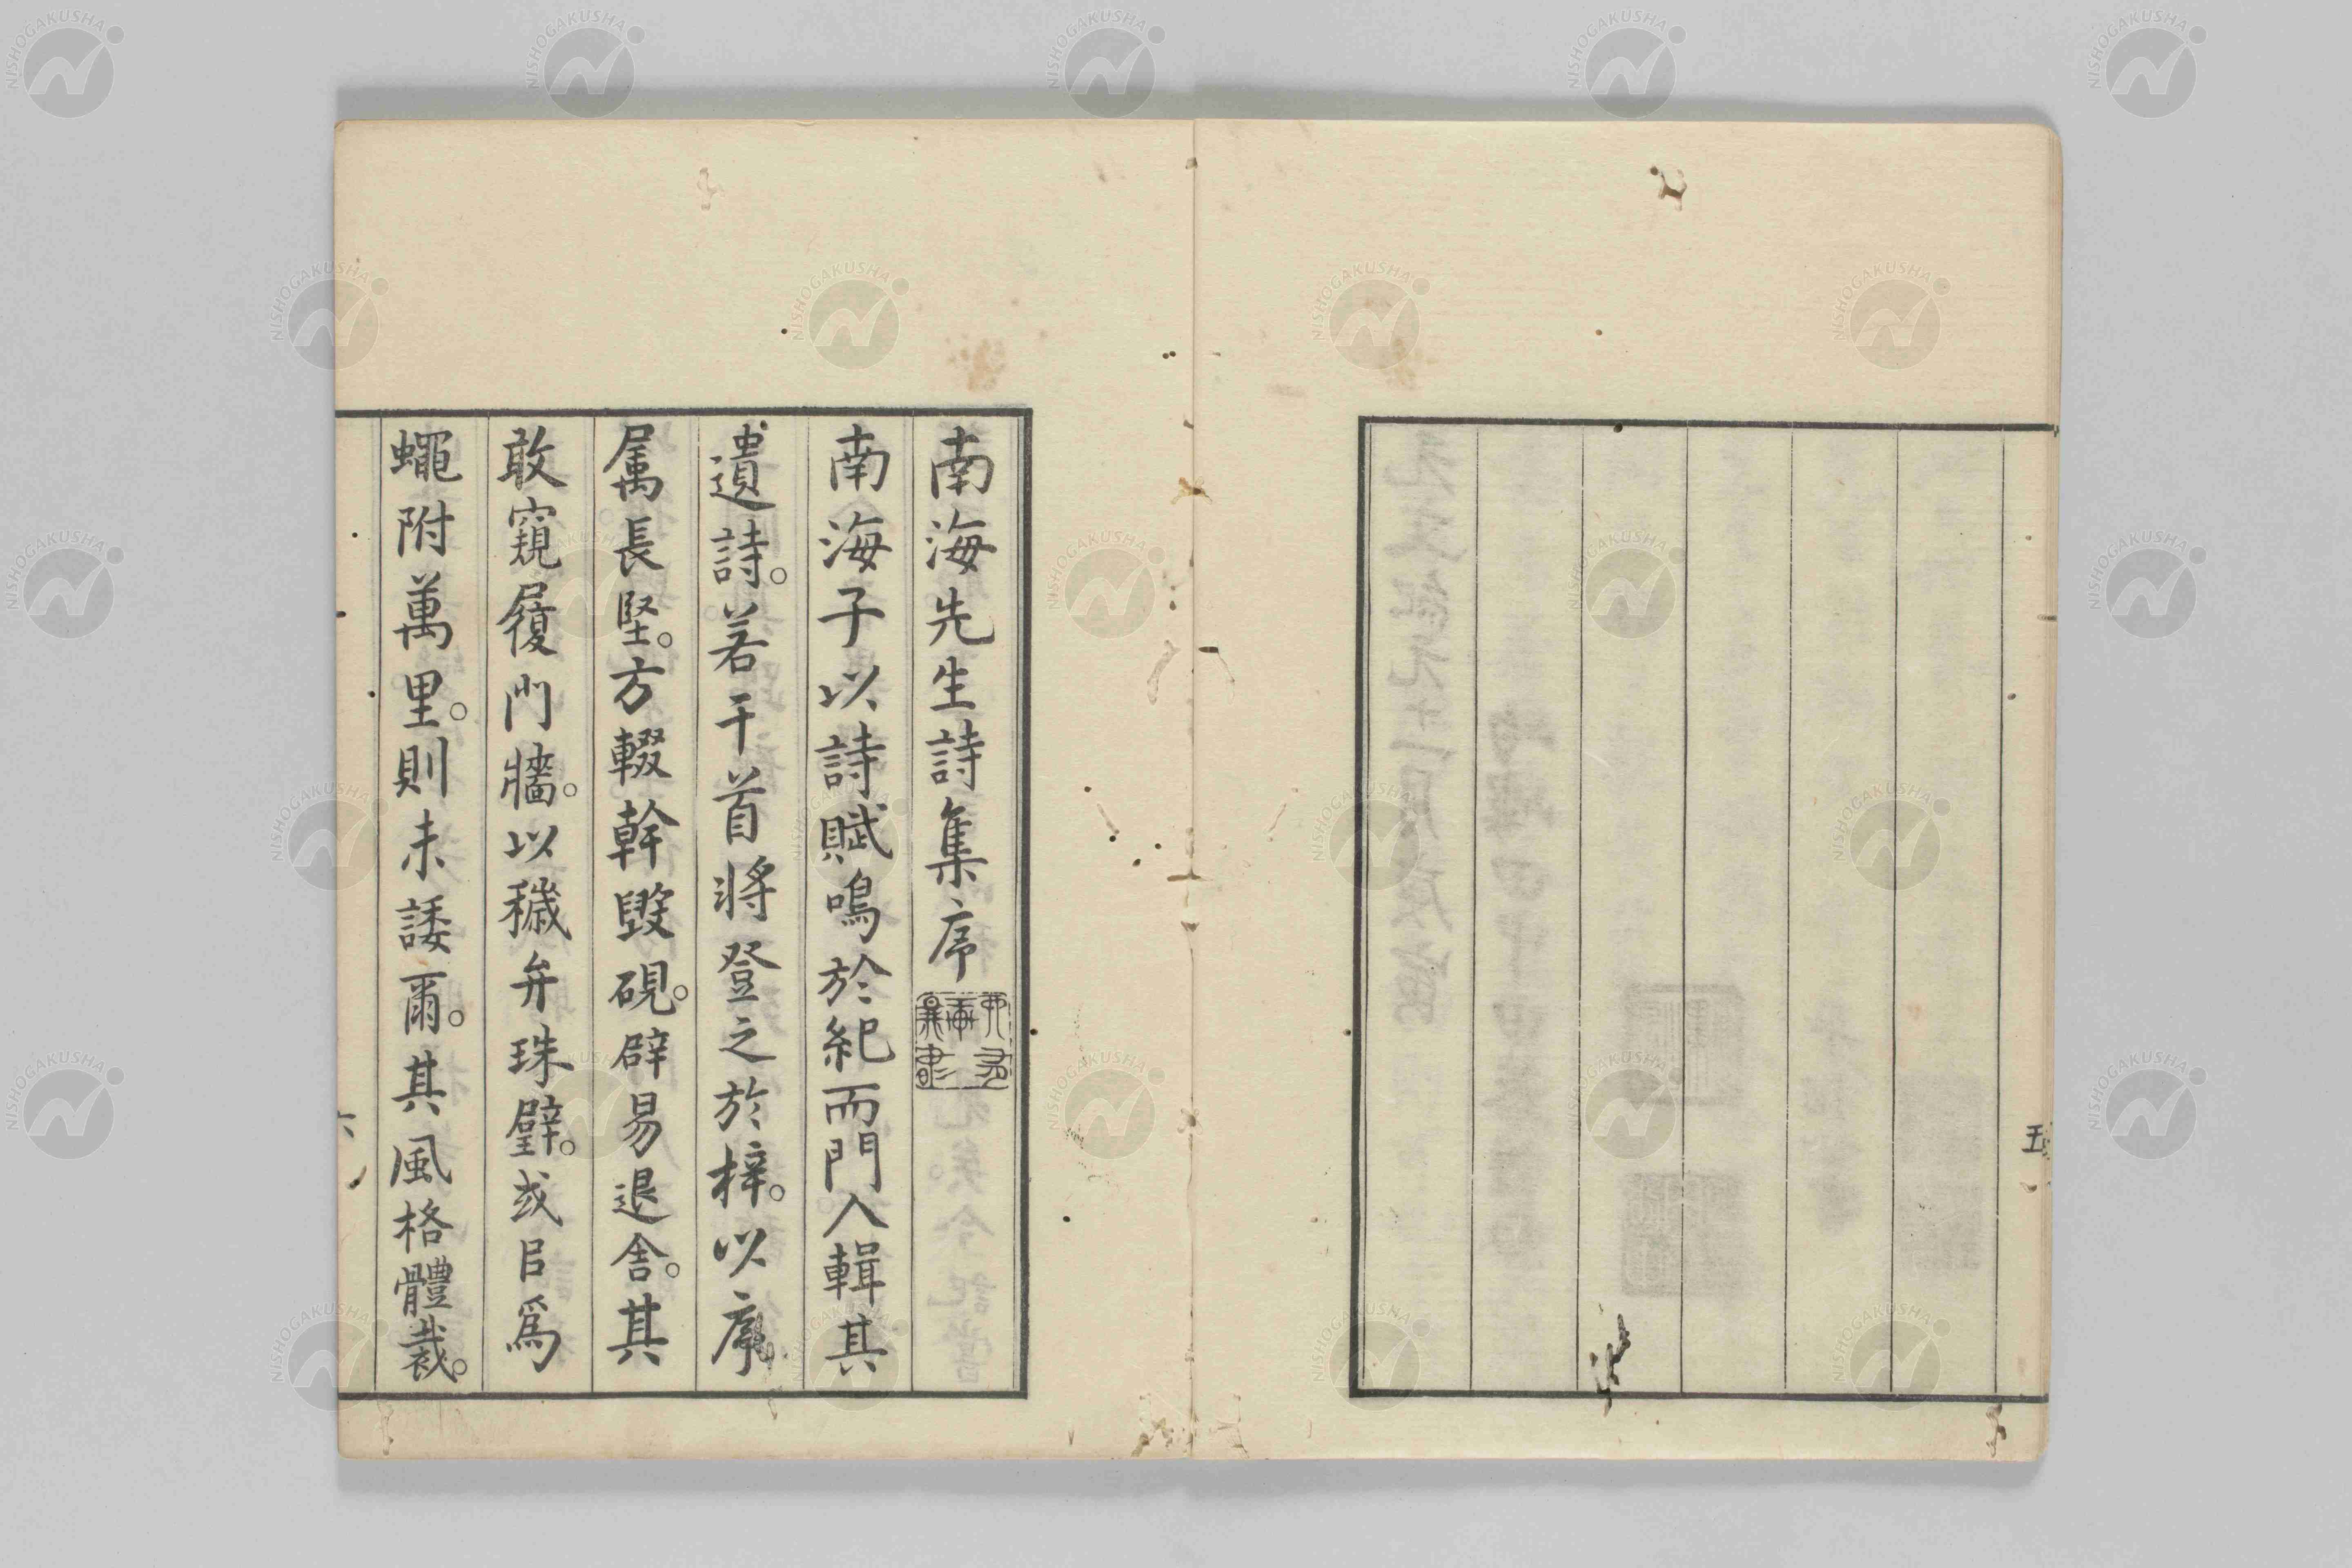 五
南海先生詩集序
南海子以詩賦鳴於紀而門人輯其
遺詩。若干首將登之於梓。以序
属長堅。方輟幹毀硯。辟易退舍。其
敢窺履門牆。以穢弁珠璧。或㠯爲
蠅附萬里。則未諉爾。其風格體裁。
六
NISHOGAKUSHA